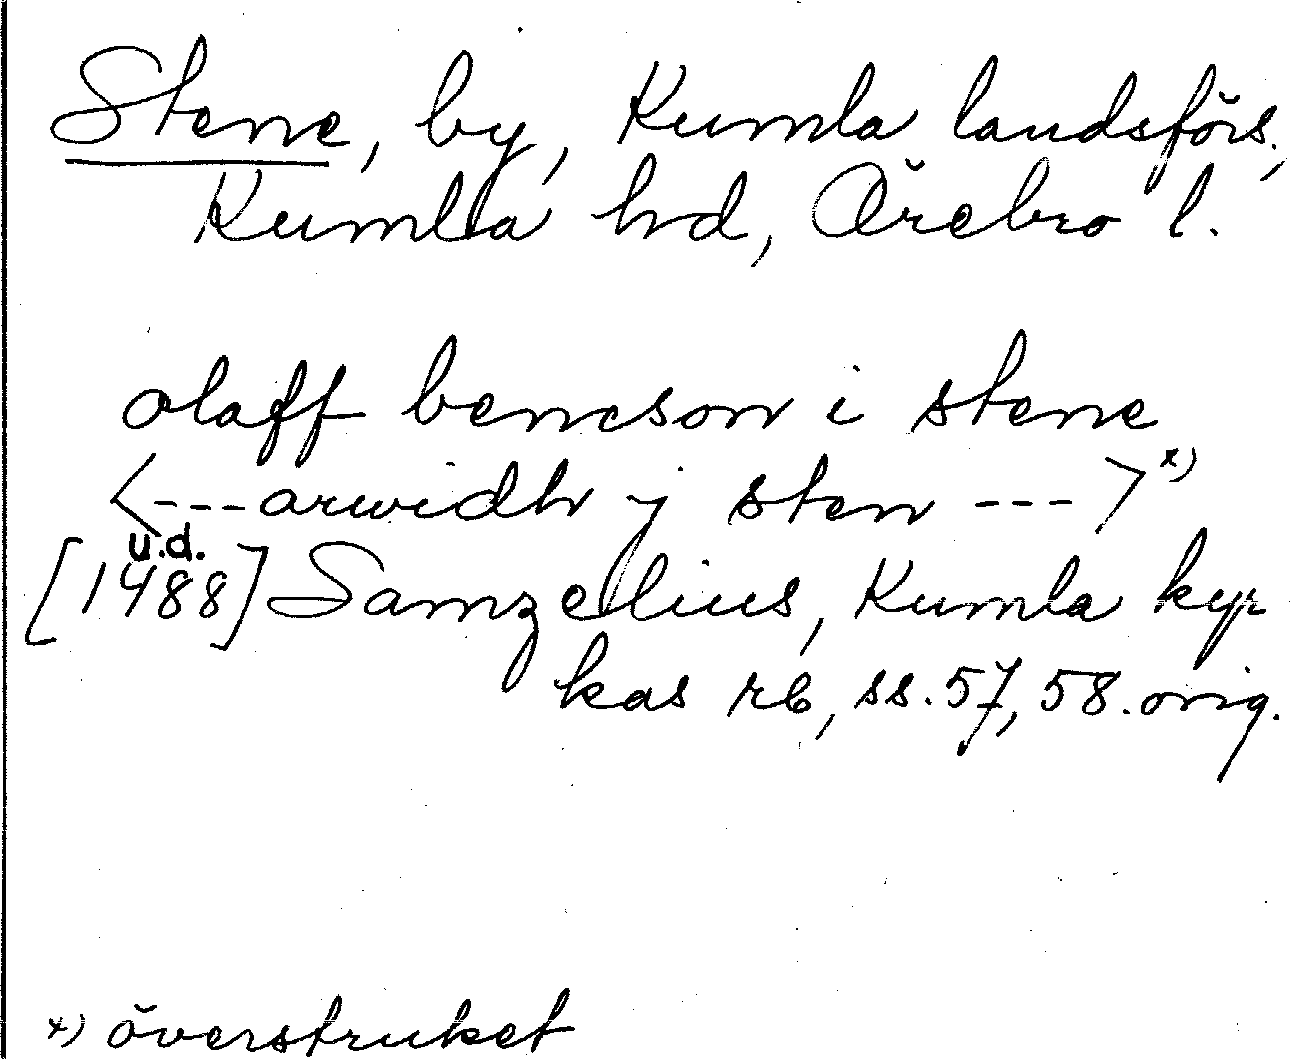 Stene, by, Kumla landsförs.,
Kumla hd, Örebro l.
olaff bencson i stene
<---arwidh j sten --->*)
u.d.
[1488] Samzelius, Kumla kyr
kas rb, ss. 57, 58. orig.
*) överstruket